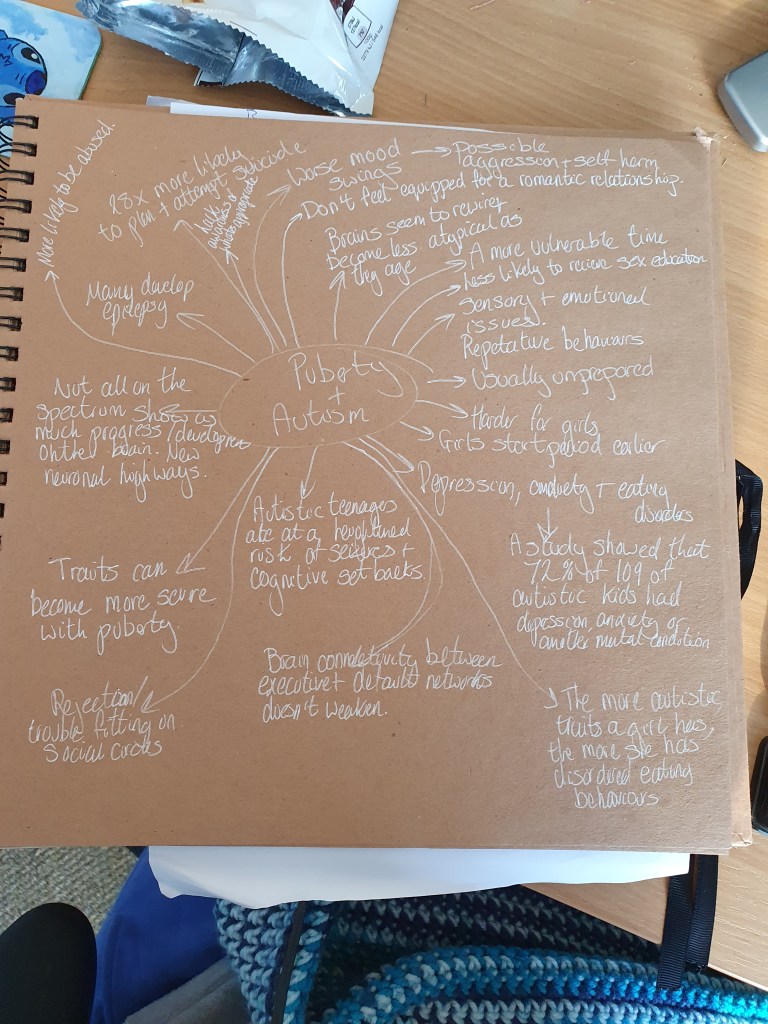 Puberty
+
Autism
More likely to be abused.
28x more likely
to plan + attempt suicide
lack
awareness of
whats appropriate
Worse mood
swings
Possible
aggression + self harm
Don't feel equipped for a romantic relationship.
Brains seem to rewire +
become less atypical as
they age
A more vulnerable time
Less likely to recieve sex education
Sensory + emotional
issues.
Repetative behaviours
Usually unprepared
Harder for girls
Girls start period earlier
Depression, anxiety + eating
disorders
A study showed that
72% of 109 of
autistic kids had
depression anxiety or
another mental condition
The more autistic
traits a girl has,
the more she has
disordered eating
behaviours
Brain connectivity between
executive + default networks
doesn't weaken.
Autistic teenages
are at a heightened
risk of seizures +
cognitive set backs.
Rejection/
trouble fitting in
Social circles
Traits can
become more severe
with puberty
Not all on the
spectrum show as
much progress / development
on the brain. New
neuronal highways.
Many develop
epilepsy